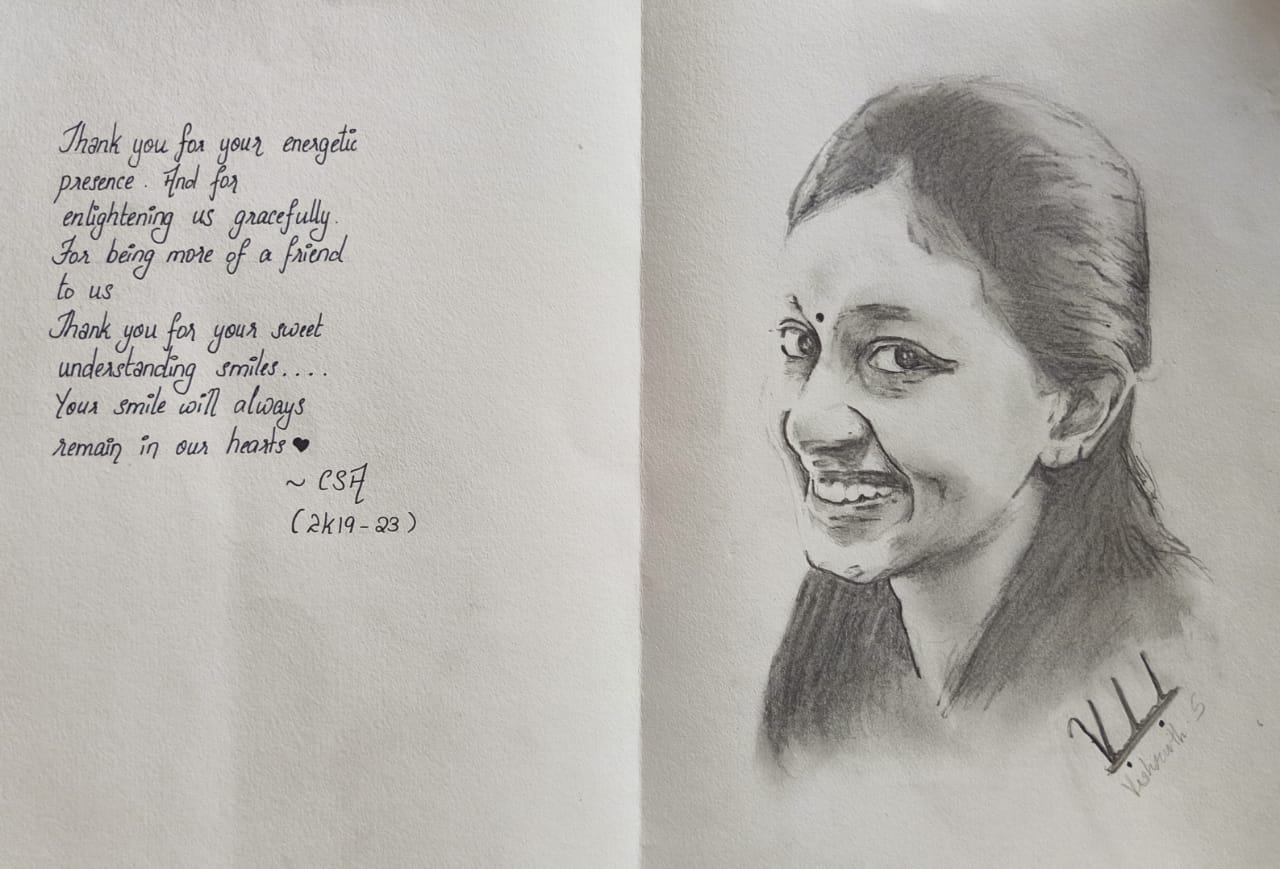 Thank you for your energetic
presence. And for
enlightening us gracefully.
For being more of a friend
to us
Thank you for your sweet
understanding smiles....
Your smile will always
remain in our hearts ♥
~ CSA
(2k19-23)